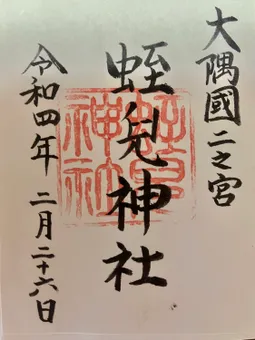 大隅國二之宮
蛭兒神社
令和四年 二月二十六日